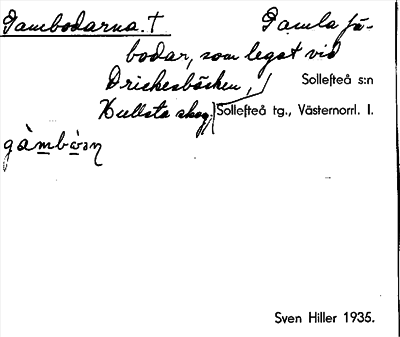 Gambodarna. † Gamla fä-
bodar, som legat vid
Drickesbäcken, Sollefteå s:n
Hullsta skog. Sollefteå tg., Västernorrl. l.
Sven Hiller 1935.